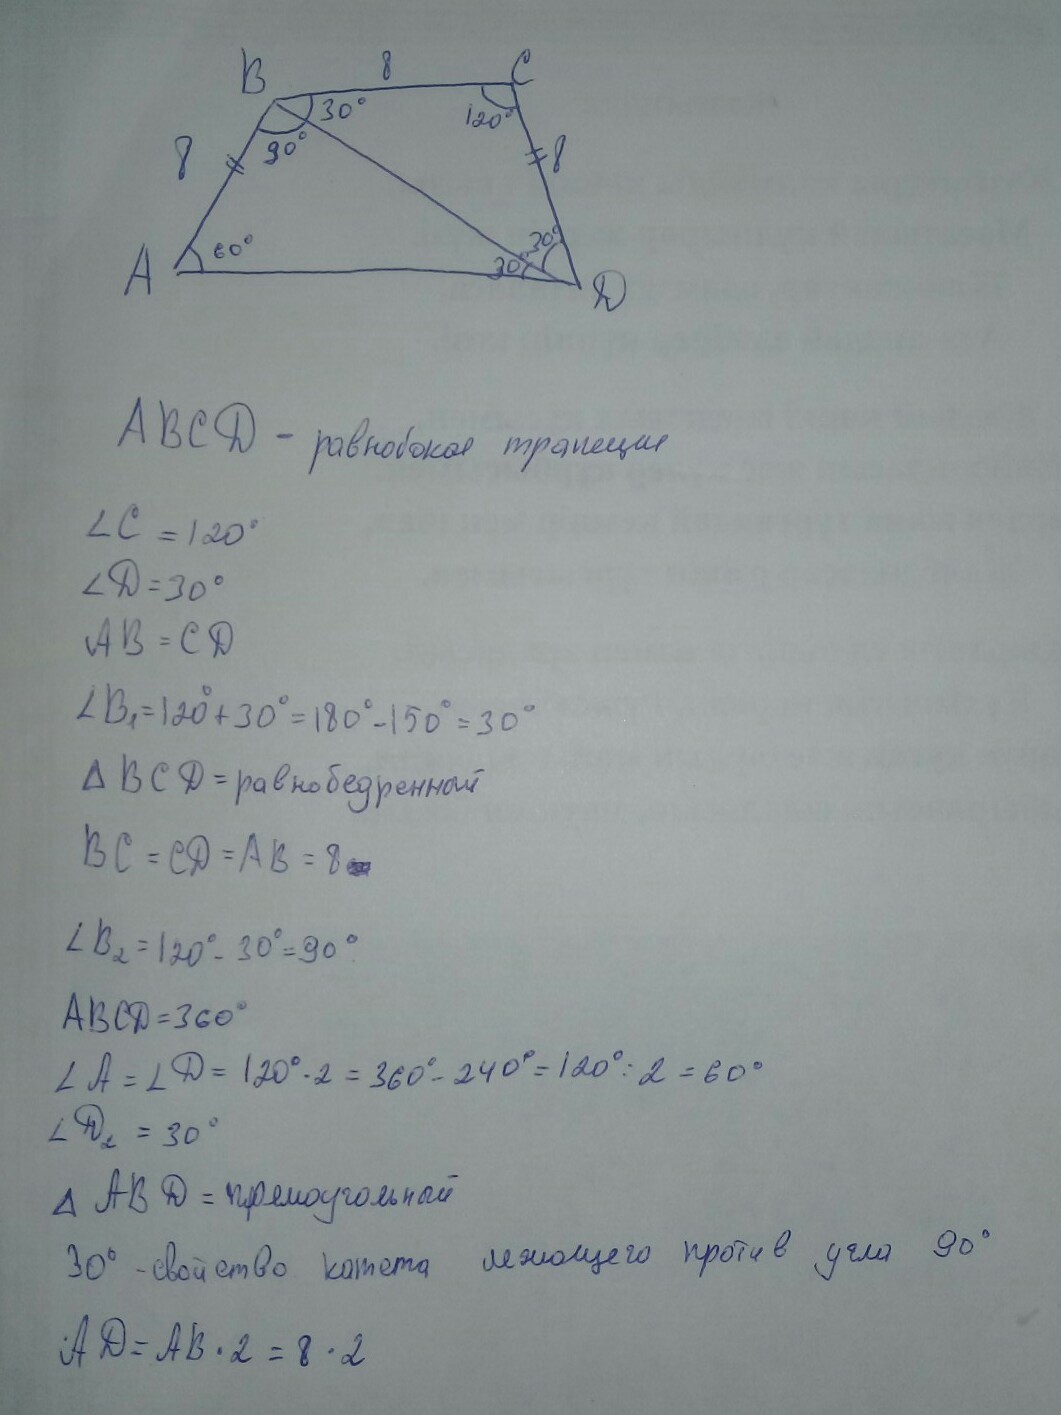 B 8 C
30° 120°
8 90° 8
A 60° 30° 30° D
ABCD - равнобокая трапеция
∠C = 120°
∠D = 30°
AB = CD
∠B₁ = 120° + 30° = 180° - 150° = 30°
△ BCD = равнобедренный
BC = CD = AB = 8
∠B₂ = 120° - 30° = 90°
ABCD = 360°
∠A = ∠D = 120° · 2 = 360° - 240° = 120° : 2 = 60°
∠D₂ = 30°
△ ABD = прямоугольный
30° - свойство катета лежащего против угла 90°
AD = AB · 2 = 8 · 2